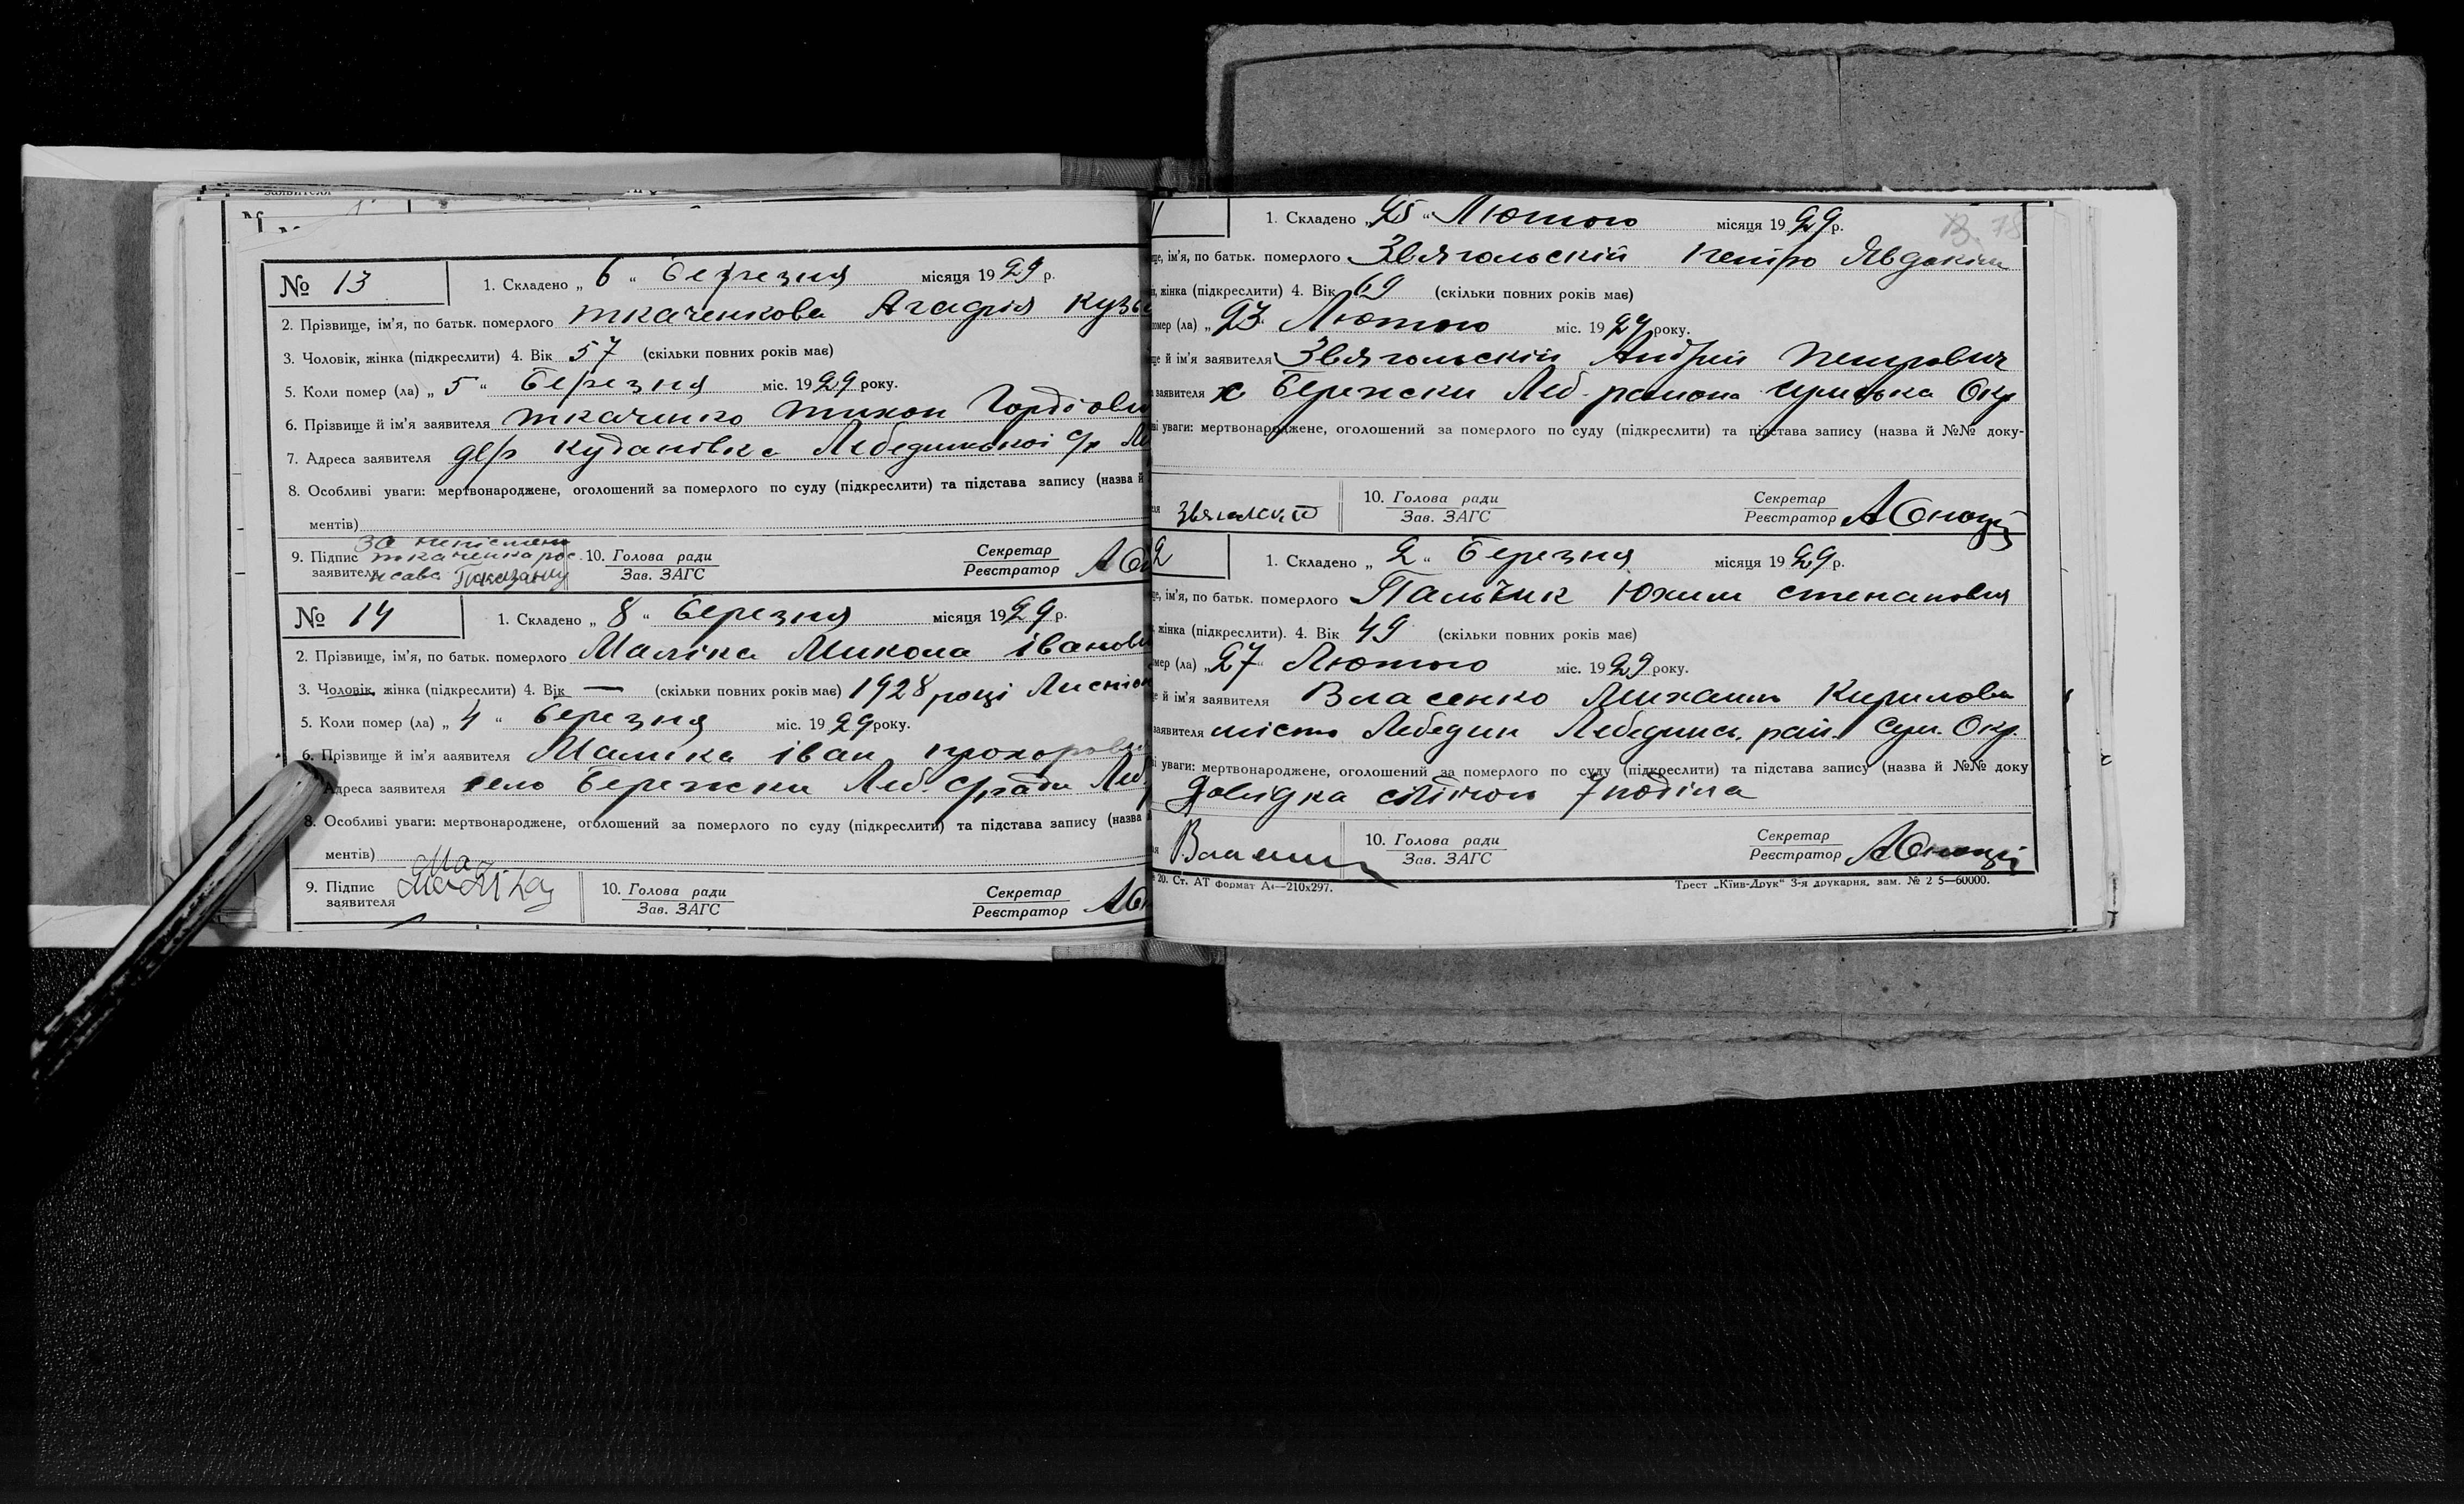 заявителя
№ 13
1. Складено „ 6 “ березня місяця 1929 р.
2. Прізвище, ім'я, по батьк. померлого Ткаченкова Агафія Кузь
3. Чоловік, жінка (підкреслити) 4. Вік 57 (скільки повних років має)
5. Коли помер (ла) „ 5 “ березня міс. 1929 року.
6. Прізвище й ім'я заявителя Ткаченко Тихон Гордіови
7. Адреса заявителя дер Куданівка Лебединської с/р Ле
8. Особливі уваги: мертвонароджене, оголошений за померлого по суду (підкреслити) та підстава запису (назва й
ментів)
9. Підпис заявителя за неписьмен Ткаченка рос
10. Голова ради
Зав. ЗАГС
Секретар
Реєстратор
№ 14
1. Складено „ 8 “ березня місяця 1929 р.
2. Прізвище, ім'я, по батьк. померлого Маліка Микола Іванови
3. Чоловік, жінка (підкреслити) 4. Вік — (скільки повних років має) 1928 році
5. Коли помер (ла) „ 4 “ березня міс. 1929 року.
6. Прізвище й ім'я заявителя Маліка Іван Прохорови
Адреса заявителя село Бережки Леб. с/ради Леб
8. Особливі уваги: мертвонароджене, оголошений за померлого по суду (підкреслити) та підстава запису (назва
ментів)
9. Підпис
заявителя Маліка
10. Голова ради
Зав. ЗАГС
Секретар
Реєстратор
1. Складено „ 25 “ Лютого місяця 1929 р.
ще, ім'я, по батьк. померлого Звягольскій Петро Явдоким
жінка (підкреслити) 4. Вік 69 (скільки повних років має)
омер (ла) „ 23 “ Лютого міс. 1929 року.
ще й ім'я заявителя Звягольскій Андрій Петрович
заявителя х Бережки Леб. района Сумська Окр
ві уваги: мертвонароджене, оголошений за померлого по суду (підкреслити) та підстава запису (назва й №№ доку-
10. Голова ради
Зав. ЗАГС
Секретар
Реєстратор
2
1. Складено „ 2 “ березня місяця 1929 р.
ще, ім'я, по батьк. померлого Пальчик Юхим Степанович
жінка (підкреслити). 4. Вік 49 (скільки повних років має)
мер (ла) „ 27 “ Лютого міс. 1929 року.
е й ім'я заявителя Власенко Михаіль Кирилови
заявителя місто Лебедин Лебединс. рай. Сум. Окр.
ві уваги: мертвонароджене, оголошений за померлого по суду (підкреслити) та підстава запису (назва й №№ доку
Довідка
10. Голова ради
Зав. ЗАГС
Секретар
Реєстратор
20. Ст. АТ формат А4—210x297.
Трест „Київ-Друк“ 3-я друкарня, зам. № 2 5—60000.